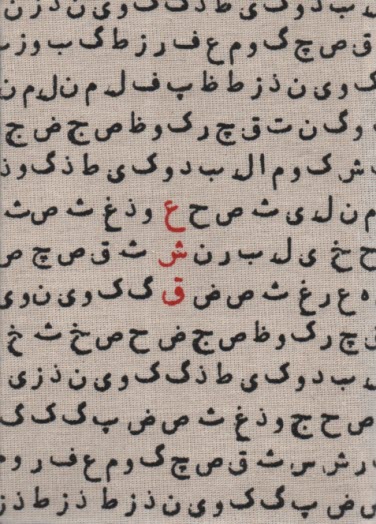 ب د و ک ی ط ذ گ ک و ی ن ذ ز ن
ق ص چ گ و م ع ف ر ز ط گ ب و ز
ک و ی ن ذ ز ط ظ پ ف ل م ن ل م ن
و گ ن ت ق چ ر ک و ظ ص ج ض چ
ش ک و م ا ل ب د و ک ی ط ذ گ و ذ
م ن ل ی ث ص ح ع و ذ غ ث ص ث
ح خ ی ل ب ر ن ش ث ق ص چ ص
ه ع ر غ ث ص ض ق گ ک و ی ن و ی
ق چ ر گ و ظ ص ج ض ح ص خ ث خ
ب د و ک ی ط ذ گ ک و ی ن ذ ز ی
ص ح ج و ذ غ ث ص ض پ گ ک گ
ر ش س ث ق ص چ گ و م ع ف ر و
ص ض پ گ ک و ی ن ذ ز ط ذ ز ط ذ ز